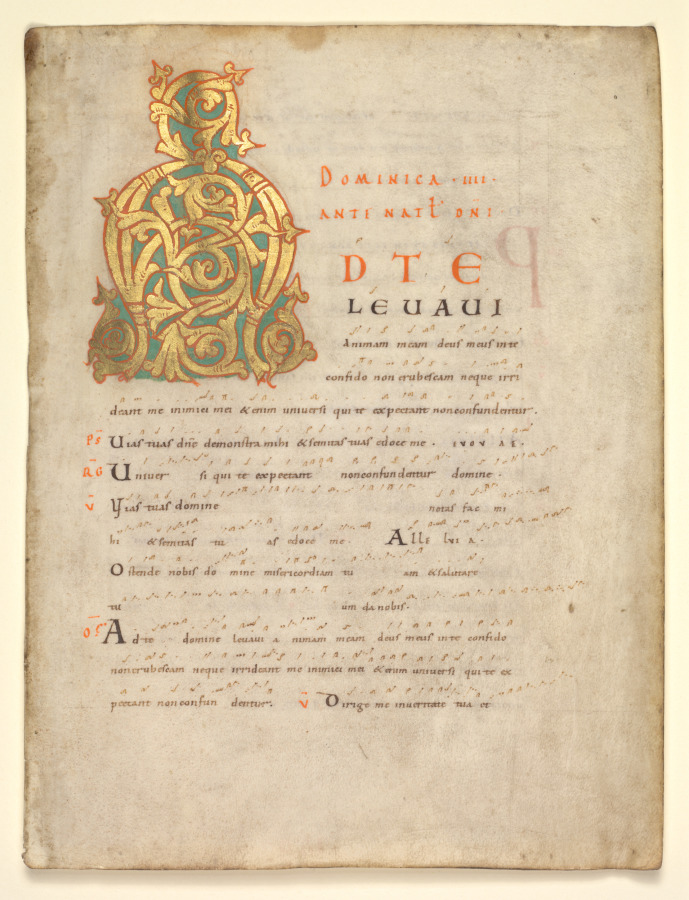 A
DOMINICA · IIII ·
ANTE NATL DNI ·
D T E
LEUAUI
Animam meam deus meus inte
confido non erubescam neque irri
deant me inimici mei & enim uniuersi qui te expectant nonconfundentur.
Ps Uias tuas dne demonstra mihi & semitas tuas edoce me. EUOUAE.
RG Uniuer si qui te expectant nonconfundentur domine.
V Uias tuas domine notas fac mi
hi & semitas tu as edoce me. Alle luia.
Ostende nobis do mine misericordiam tu am & salutare
tu um da nobis.
OF Ad te domine leuaui a nimam meam deus meus inte confido
nonerubescam neque irrideant me inimici mei & enim uniuersi qui te ex
pectant nonconfun dentur. V Dirige me inueritate tua et